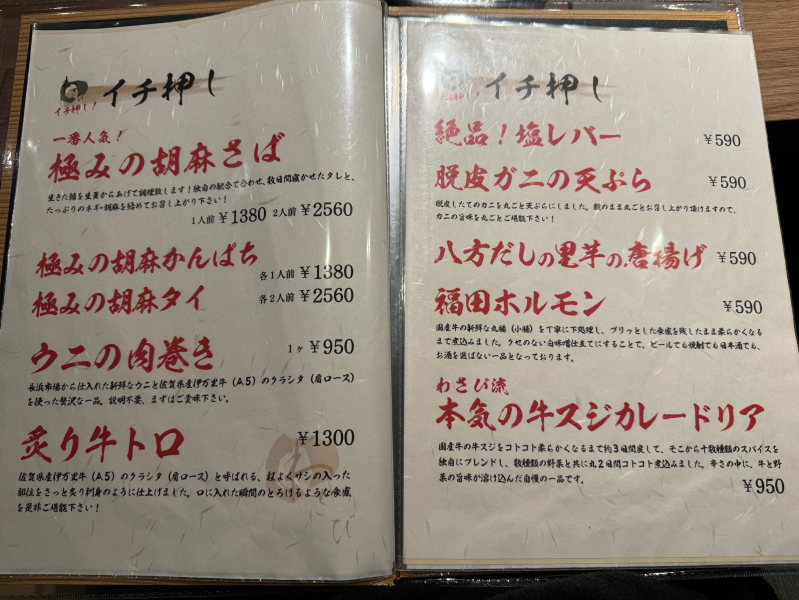 イチ押し!
イチ押し
一番人気!
極みの胡麻さば
生きた鯖を生簀からあげて調理致します!独自の配合で合わせ、数日間寝かせたタレと、
たっぷりのネギ・胡麻を絡めてお召し上がり下さい!
1人前 ¥1380 2人前 ¥2560
極みの胡麻かんぱち
各1人前 ¥1380
極みの胡麻タイ
各2人前 ¥2560
ウニの肉巻き
1ヶ ¥950
長浜市場から仕入れた新鮮なウニと佐賀県産伊万里牛(A5)のクラシタ(肩ロース)
を使った贅沢な一品。説明不要、まずはご賞味下さい。
炙り牛トロ
¥1300
佐賀県産伊万里牛(A5)のクラシタ(肩ロース)と呼ばれる、程よくサシの入った
部位をさっと炙り刺身のように仕上げました。口に入れた瞬間のとろけるような食感
を是非ご堪能下さい!
び
イチ押し
絶品!塩レバー
¥590
脱皮ガニの天ぷら
¥590
脱皮したてのカニを丸ごと天ぷらにしました。殻のまま丸ごとお召し上がり頂けますので、
カニの旨味を丸ごとご堪能下さい!
八方だしの里芋の唐揚げ
¥590
福田ホルモン
¥590
国産牛の新鮮な丸腸(小腸)を丁寧に下処理し、プリッとした食感を残したまま柔らかくなる
まで煮込みました。クセのない白味噌仕立てにすることで、ビールでも焼酎でも日本酒でも、
お酒を選ばない一品となっております。
わさび流
本気の牛スジカレードリア
国産牛の牛スジをコトコト柔らかくなるまで約3日間戻して、そこから十数種類のスパイスを
独自にブレンドし、数種類の野菜と共に丸2日間コトコト煮込みました。辛さの中に、牛と野
菜の旨味が溶け込んだ自慢の一品です。
¥950